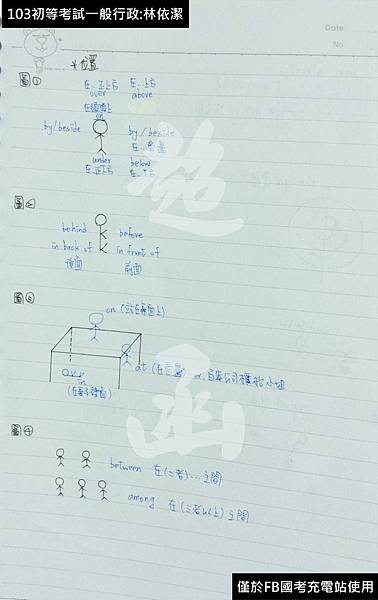 103初等考試一般行政:林依潔
Date
No
*位置
圖①
在...正上方 在...上方
over above
在表面上
on
by/beside by/beside
在...旁邊
under below
在...正下方 在...下方
圖②
behind before
in back of in front of
後面 前面
圖③
on (站在桌面上)
at (在這邊)
in
(在桌子裡面)
圖④
between 在(二者)...之間
among 在(三者以上)之間
超
函
僅於FB國考充電站使用